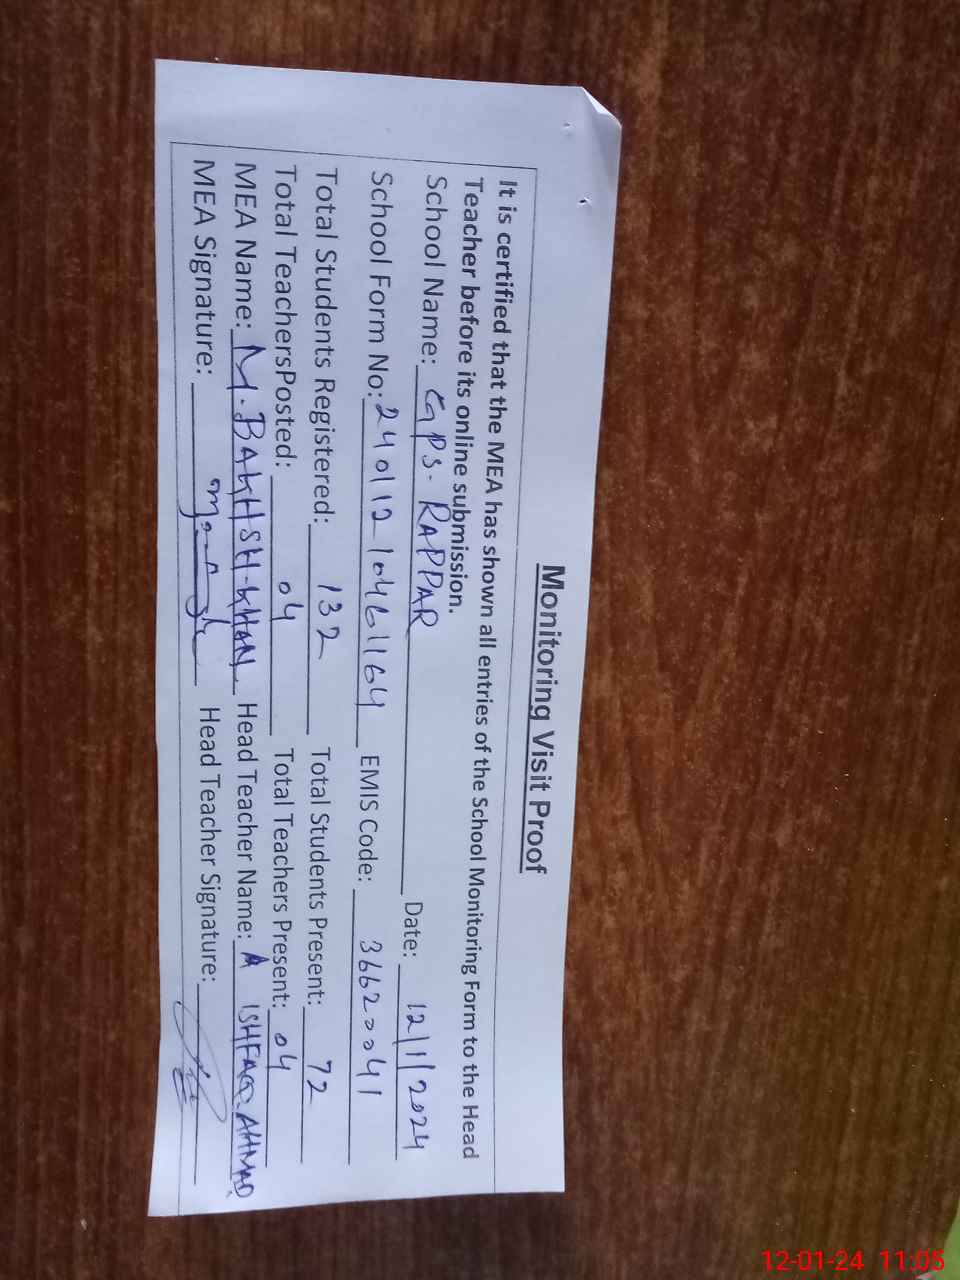 Monitoring Visit Proof
It is certified that the MEA has shown all entries of the School Monitoring Form to the Head
Teacher before its online submission.
School Name: GPS. RAPPAR Date: 12/1/2024
School Form No: 24011210461164 EMIS Code: 36620041
Total Students Registered: 132 Total Students Present: 72
Total TeachersPosted: 04 Total Teachers Present: 04
MEA Name: M. BAKHSH KHAN Head Teacher Name: ISHFAQ AHMAD
MEA Signature: Head Teacher Signature:
12-01-24 11:05